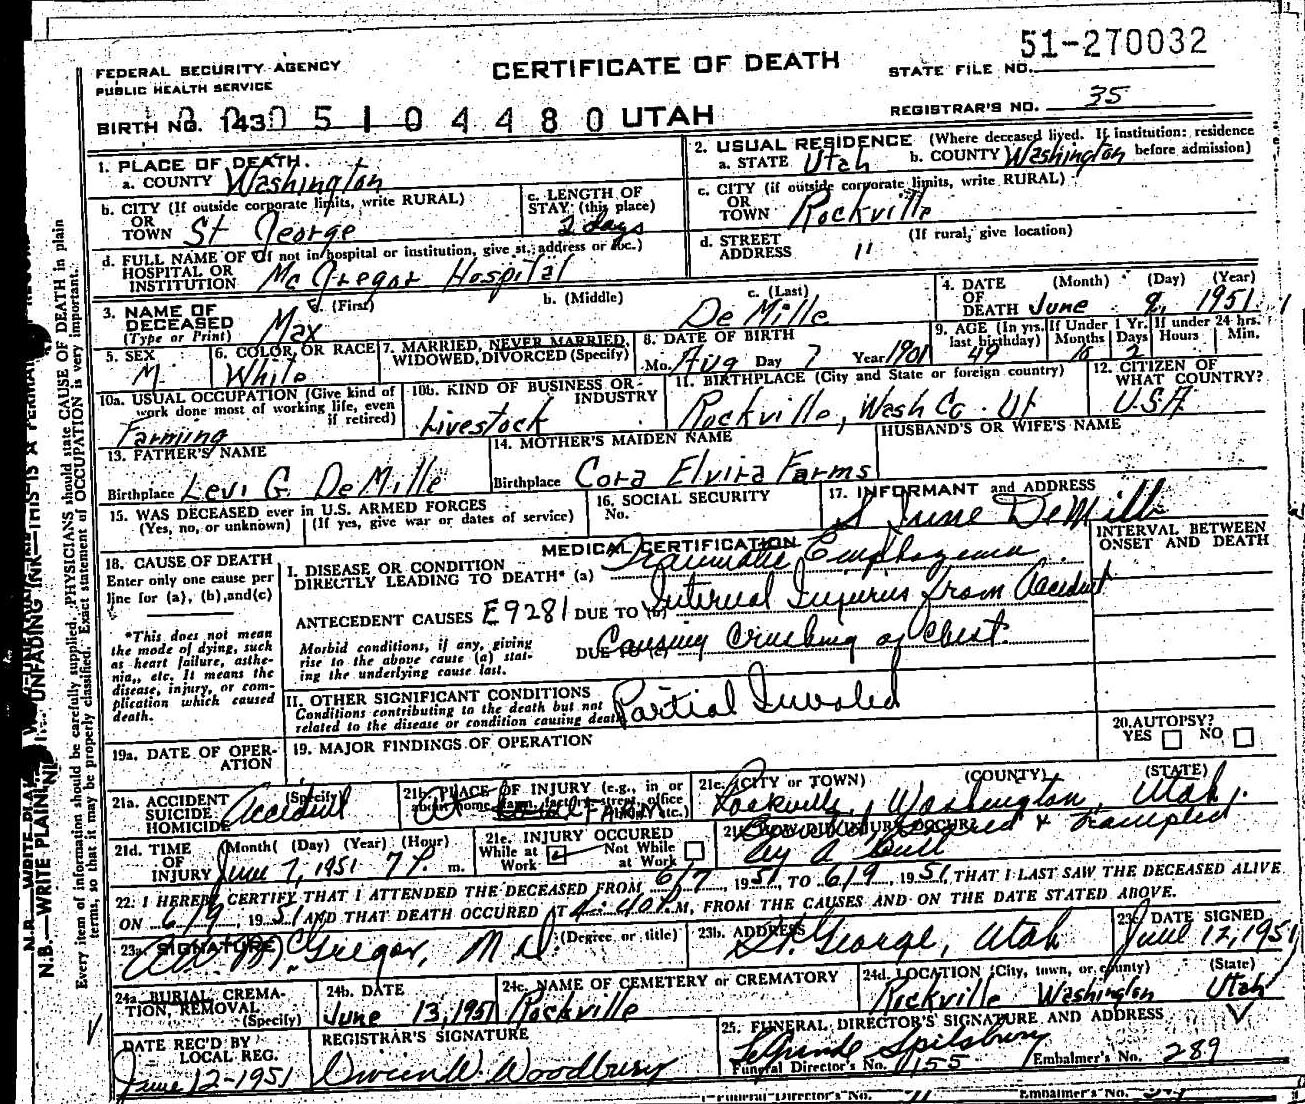 51-270032
FEDERAL SECURITY AGENCY
PUBLIC HEALTH SERVICE
CERTIFICATE OF DEATH
STATE FILE NO.
BIRTH NO. 143 0 0 0 5 1 0 4 4 8 0 UTAH
REGISTRAR'S NO. 35
1. PLACE OF DEATH.
a. COUNTY Washington
2. USUAL RESIDENCE (Where deceased lived. If institution: residence before admission)
a. STATE Utah b. COUNTY Washington
b. CITY (If outside corporate limits, write RURAL)
OR
TOWN St George
c. LENGTH OF STAY (this place)
2 days
c. CITY (if outside corporate limits, write RURAL)
OR
TOWN Rockville
d. FULL NAME OF (If not in hospital or institution, give st. address or loc.)
HOSPITAL OR
INSTITUTION McGregor Hospital
d. STREET ADDRESS " (If rural, give location)
3. NAME OF DECEASED
(Type or Print)
(First) b. (Middle) c. (Last)
Max De Mille
4. DATE OF DEATH (Month) (Day) (Year)
June 9, 1951
5. SEX
M
6. COLOR OR RACE
White
7. MARRIED, NEVER MARRIED, WIDOWED, DIVORCED (Specify)
8. DATE OF BIRTH
Mo. Aug Day 7 Year 1901
9. AGE (In yrs. last birthday) 49
If Under 1 Yr. Months 10 Days 2
If under 24 hrs. Hours Min.
10a. USUAL OCCUPATION (Give kind of work done most of working life, even if retired)
Farming
10b. KIND OF BUSINESS OR INDUSTRY
Livestock
11. BIRTHPLACE (City and State or foreign country)
Rockville, Wash Co. Ut
12. CITIZEN OF WHAT COUNTRY?
U.S.A.
13. FATHER'S NAME
Birthplace Levi G DeMille
14. MOTHER'S MAIDEN NAME
Birthplace Cora Elvira Farms
HUSBAND'S OR WIFE'S NAME
15. WAS DECEASED ever in U.S. ARMED FORCES
(Yes, no, or unknown) (If yes, give war or dates of service)
16. SOCIAL SECURITY
No.
17. INFORMANT and ADDRESS
June DeMille
18. CAUSE OF DEATH
Enter only one cause per line for (a), (b), and (c)
*This does not mean the mode of dying, such as heart failure, asthenia, etc. It means the disease, injury, or complication which caused death.
MEDICAL CERTIFICATION
INTERVAL BETWEEN ONSET AND DEATH
I. DISEASE OR CONDITION
DIRECTLY LEADING TO DEATH* (a) Traumatic Emphazema
ANTECEDENT CAUSES E9281 DUE TO (b) Internal Injuries from Accident
Morbid conditions, if any, giving rise to the above cause (a) stating the underlying cause last.
DUE TO (c) Causing Crushing of Chest.
II. OTHER SIGNIFICANT CONDITIONS
Conditions contributing to the death but not related to the disease or condition causing death
Partial Invalid
19a. DATE OF OPERATION
19. MAJOR FINDINGS OF OPERATION
20. AUTOPSY?
YES NO
21a. ACCIDENT (Specify)
SUICIDE
HOMICIDE
Accident
21b. PLACE OF INJURY (e.g., in or about home, farm, factory, street, office bldg., etc.)
At FARM
21c. (CITY or TOWN) (COUNTY) (STATE)
Rockville, Washington, Utah.
21d. TIME OF INJURY (Month) (Day) (Year) (Hour)
June 7, 1951 7 P. m.
21e. INJURY OCCURED
While at Work Not While at Work
21f. HOW DID INJURY OCCUR?
& trampled
by a Bull
22. I HEREBY CERTIFY THAT I ATTENDED THE DECEASED FROM 6/7, 1951 TO 6/9, 1951, THAT I LAST SAW THE DECEASED ALIVE
ON 6/9 1951 AND THAT DEATH OCCURED AT 4:40 P.M, FROM THE CAUSES AND ON THE DATE STATED ABOVE.
23a. SIGNATURE (Degree or title)
McGregor, M.D.
23b. ADDRESS
St. George, Utah
23c. DATE SIGNED
June 12, 1951
24a. BURIAL, CREMATION, REMOVAL (Specify)
24b. DATE
June 13, 1951
24c. NAME OF CEMETERY or CREMATORY
Rockville
24d. LOCATION (City, town, or county) (State)
Rockville Washington Utah
DATE REC'D BY LOCAL REG.
June 12-1951
REGISTRAR'S SIGNATURE
Vivien W. Woodbury
25. FUNERAL DIRECTOR'S SIGNATURE AND ADDRESS
LeGrande Spilsbury
Funeral Director's No. 155 Embalmer's No. 289
Funeral Director's No. Embalmer's No.
N.B.—WRITE PLAINLY WITH UNFADING INK—THIS IS A PERMANENT RECORD
Every item of information should be carefully supplied. PHYSICIANS should state CAUSE OF DEATH in plain
terms, so that it may be properly classified. Exact statement of OCCUPATION is very important.